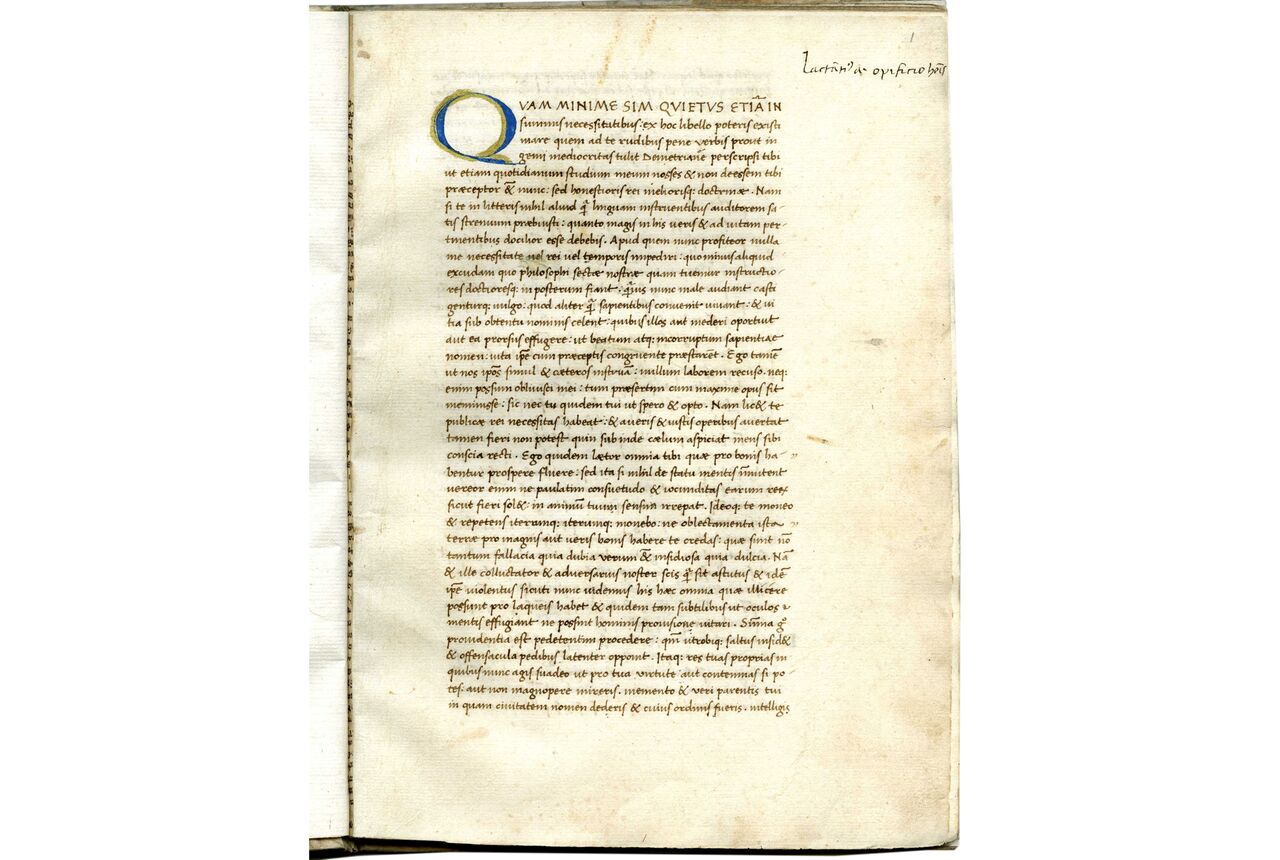 1
Lactāti᾽ de opificio hoīs
QVAM MINIME SIM QVIETVS ETIĀ IN
summis necessitatibus: ex hoc libello poteris existi
mare quem ad te rudibus pene verbis prout in
genii mediocritas tulit Demetriane perscripsi tibi
ut etiam quotidianum studium meum nosses & non deessem tibi
præceptor & nunc: sed honestioris rei meliorisq; doctrinæ. Nam
si te in litteris nihil aliud q̄ linguam instruentibus auditorem sa-
tis strenuum præbuisti: quanto magis in his veris & ad uitam per-
tinentibus docilior esse debebis. Apud quem nunc profiteor nulla
me necessitate uel rei uel temporis impediri: quominus aliquid
excudam quo philosophi sectæ nostræ quam tuemur instructio-
res doctioresq; in posterum fiant. q̄uis nunc male audiant casti
genturq; uulgo: quod aliter q̄ sapientibus convenit uiuant: & ui
tia sub obtentu nominis celent: quibus illos aut mederi oportuit
aut ea prorsus effugere: ut beatum atq; incorruptum sapientiæ
nomen: uita ipsa cum præceptis congruente præstarēt. Ego tamē
ut nos ip̄os simul & cæteros instruā: nullum laborem recuso. neq;
enim possum obliuisci mei: tum præsertim cum maxime opus sit
meminisse: sic nec tu quidem tui ut spero & opto. Nam lic& te
publicæ rei necessitas habeat: & a ueris & iustis operibus auertat
tamen fieri non potest quin subinde cælum aspiciat mens sibi
conscia recti. Ego quidem lætor omnia tibi quæ pro bonis ha-
bentur prospere fluere: sed ita si nihil de statu mentis īmutent
uereor enim ne paulatim consuetudo & iocunditas earum rerū
sicut fieri sol&: in animū tuum sensim irrepat. Ideoq; te moneo
& repetens iterumq; iterumq; monebo: ne oblectamenta ista
terræ pro magnis aut ueris bonis habere te credas: quæ sunt nō
tantum fallacia quia dubia verum & insidiosa quia dulcia. Nā
& ille colluctator & adversarius noster scis q̄ sit astutus & idē
ip̄e uiolentus sicuti nunc uidemus his hæc omnia quæ illicere
possunt pro laqueis habet & quidem tam subtilibus ut oculos
mentis effugiant ne possint hominis prouisione uitari. Sūma g°
prouidentia est pedetentim procedere: qm̄ utrobiq; saltus insid&
& offensacula pedibus latenter opponit. Itaq; res tuas prosperas in
quibus nunc agis suadeo ut pro tua virtute aut contemnas si po-
tes: aut non magnopere mireris. memento & veri parentis tui
in quam ciuitatem nomen dederis & cuius ordinis fueris. intelligis